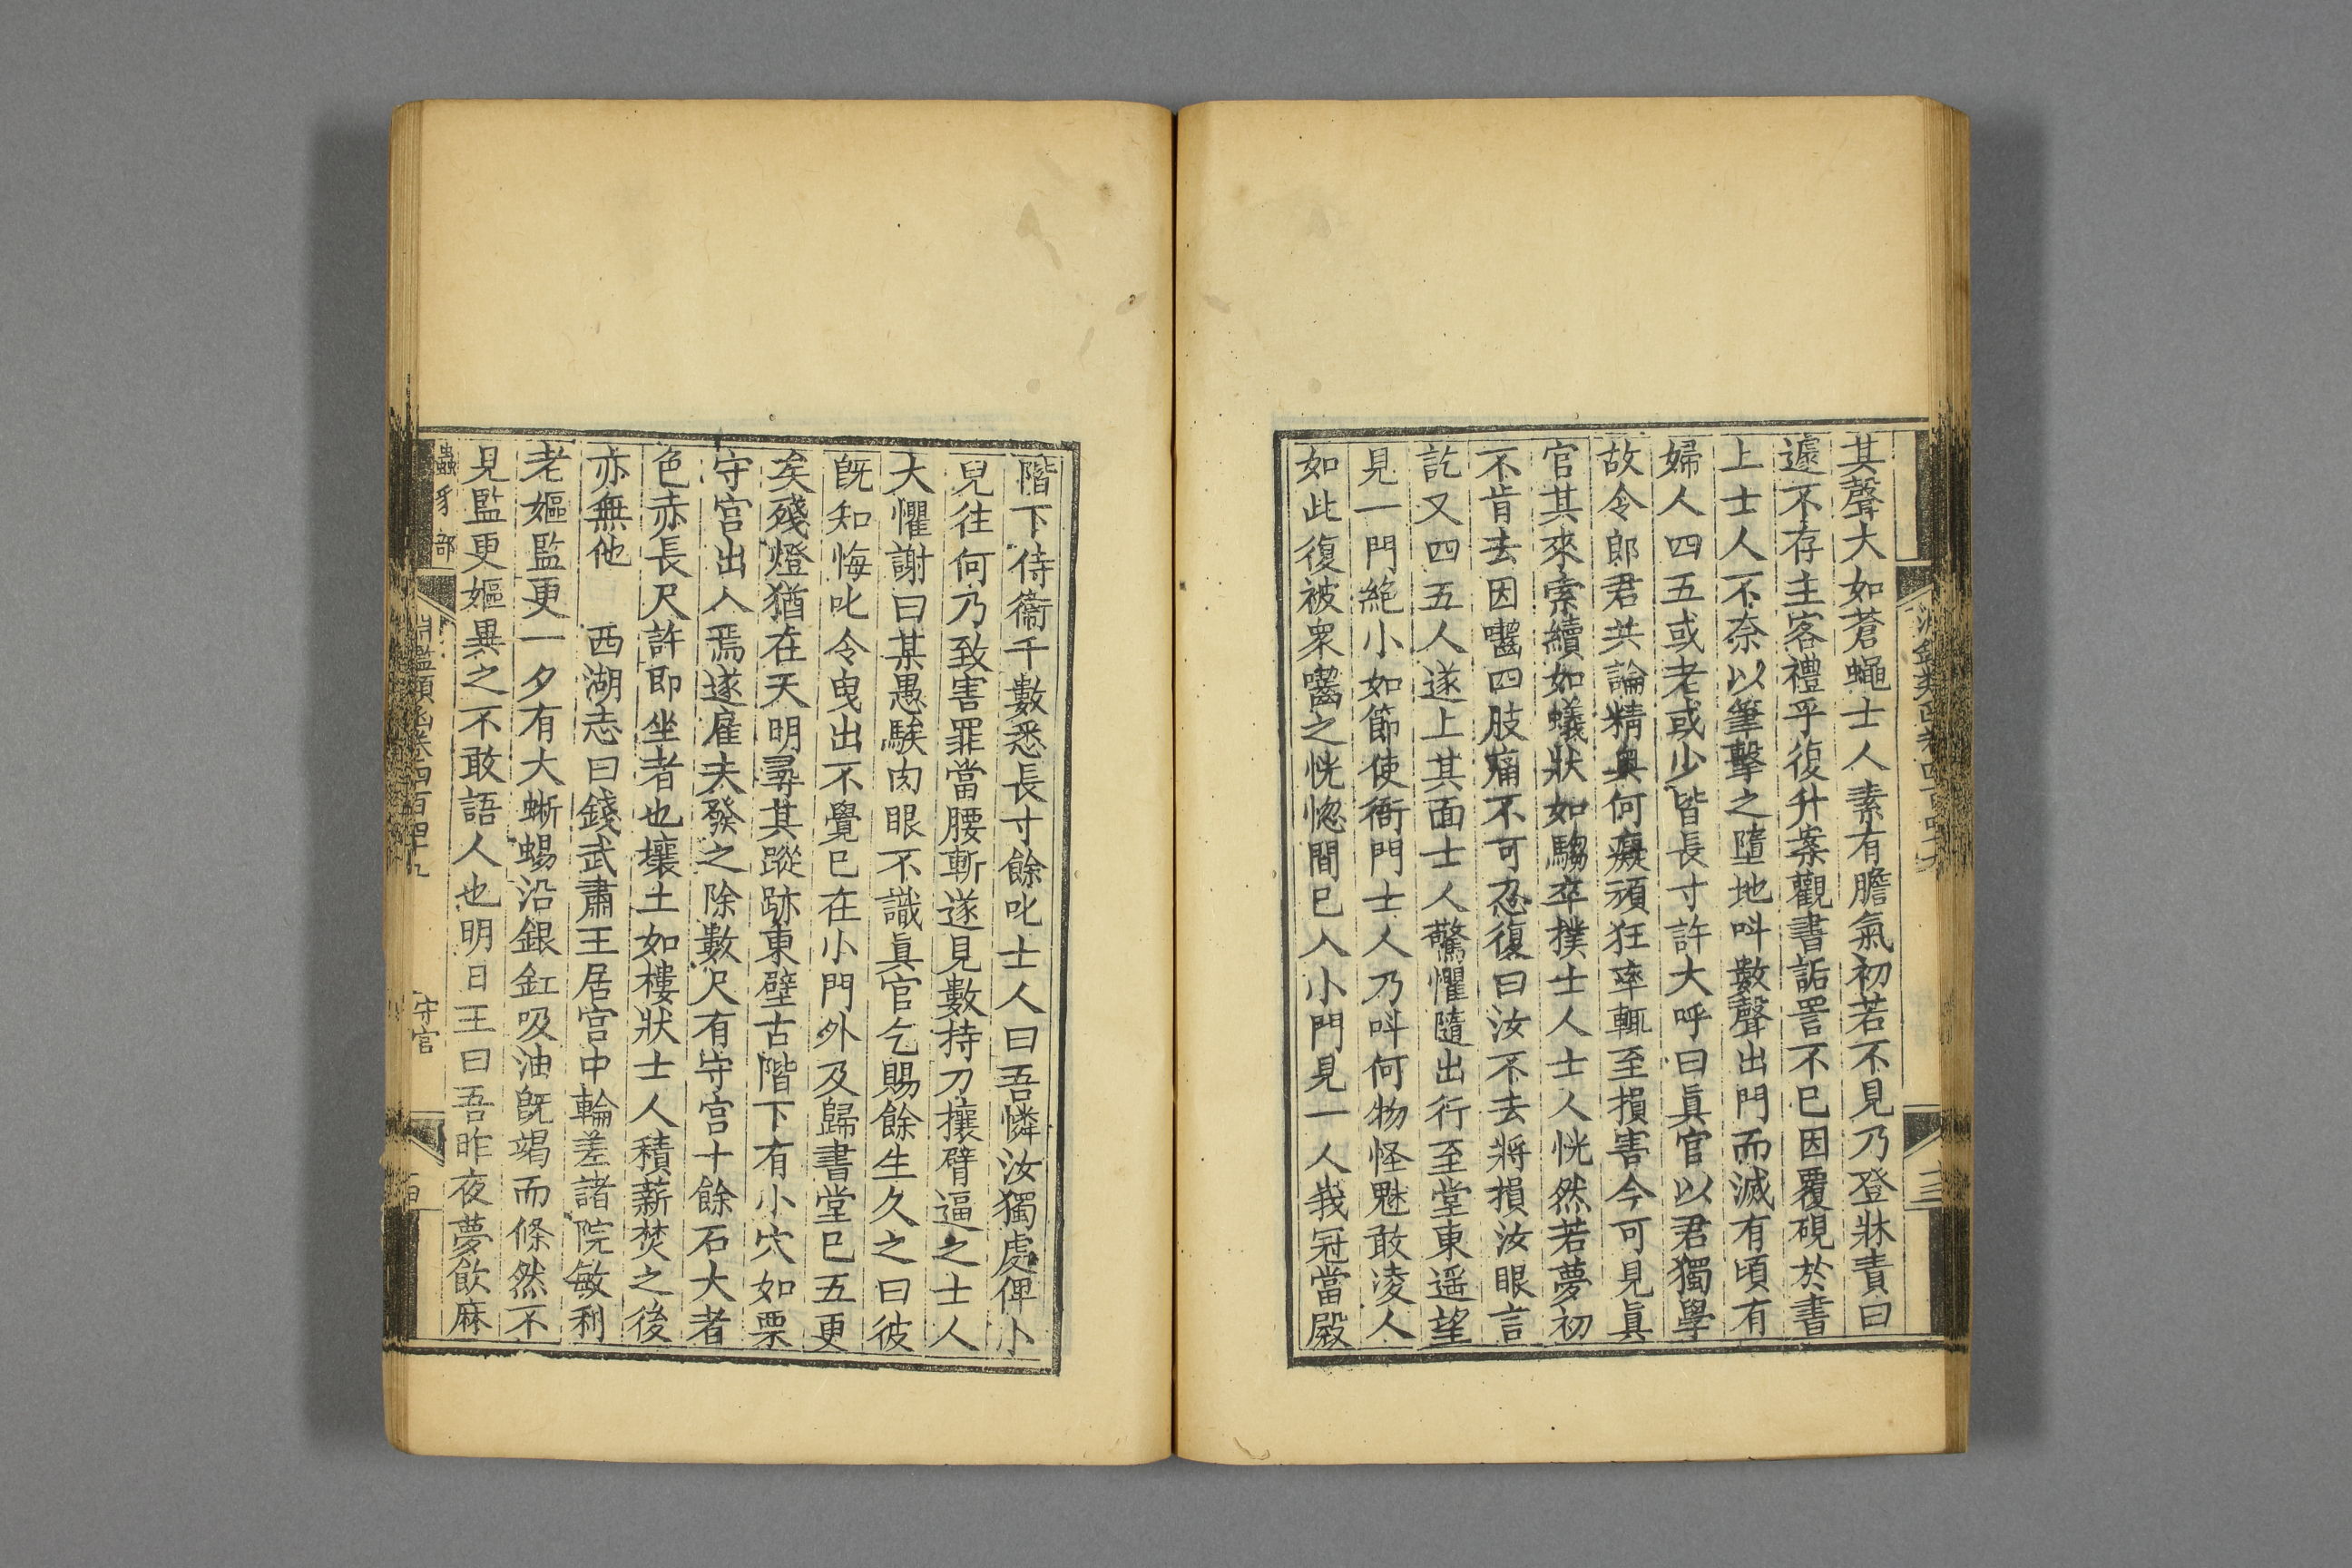 其聲大如蒼蠅士人素有膽氣初若不見乃登牀責曰
遽不存主客禮乎復升案觀書詬詈不已因覆硯於書
上士人不奈以筆擊之墮地呌數聲出門而滅有頃有
婦人四五或老或少皆長寸許大呼曰眞官以君獨學
故令郎君共論精奧何癡頑狂率輒至損害今可見眞
官其來索續如蟻狀如騶卒撲士人士人恍然若夢初
不肯去因齧四肢痛不可忍復曰汝不去將損汝眼言
訖又四五人遂上其面士人驚懼隨出行至堂東遥望
見一門絶小如節使衙門士人乃呌何物怪魅敢凌人
如此復被衆齧之恍惚間已入小門見一人峩冠當殿
階下侍衞千數悉長寸餘叱士人曰吾憐汝獨處俾卜
兒往何乃致害罪當腰斬遂見數持刀攘臂逼之士人
大懼謝曰某愚騃肉眼不識眞官乞賜餘生久之曰彼
旣知悔叱令曳出不覺已在小門外及歸書堂已五更
矣殘燈猶在天明尋其蹤跡東壁古階下有小穴如栗
守宫出入焉遂雇夫發之除數尺有守宫十餘石大者
色赤長尺許即坐者也壤土如樓狀士人積薪焚之後
亦無他　西湖志曰錢武肅王居宫中輪差諸院敏利
老嫗監更一夕有大蜥蜴沿銀缸吸油旣竭而倏然不
見監更嫗異之不敢語人也明日王曰吾昨夜夢飮麻
蟲豸部
淵鑑類函卷四百四十九
守宫